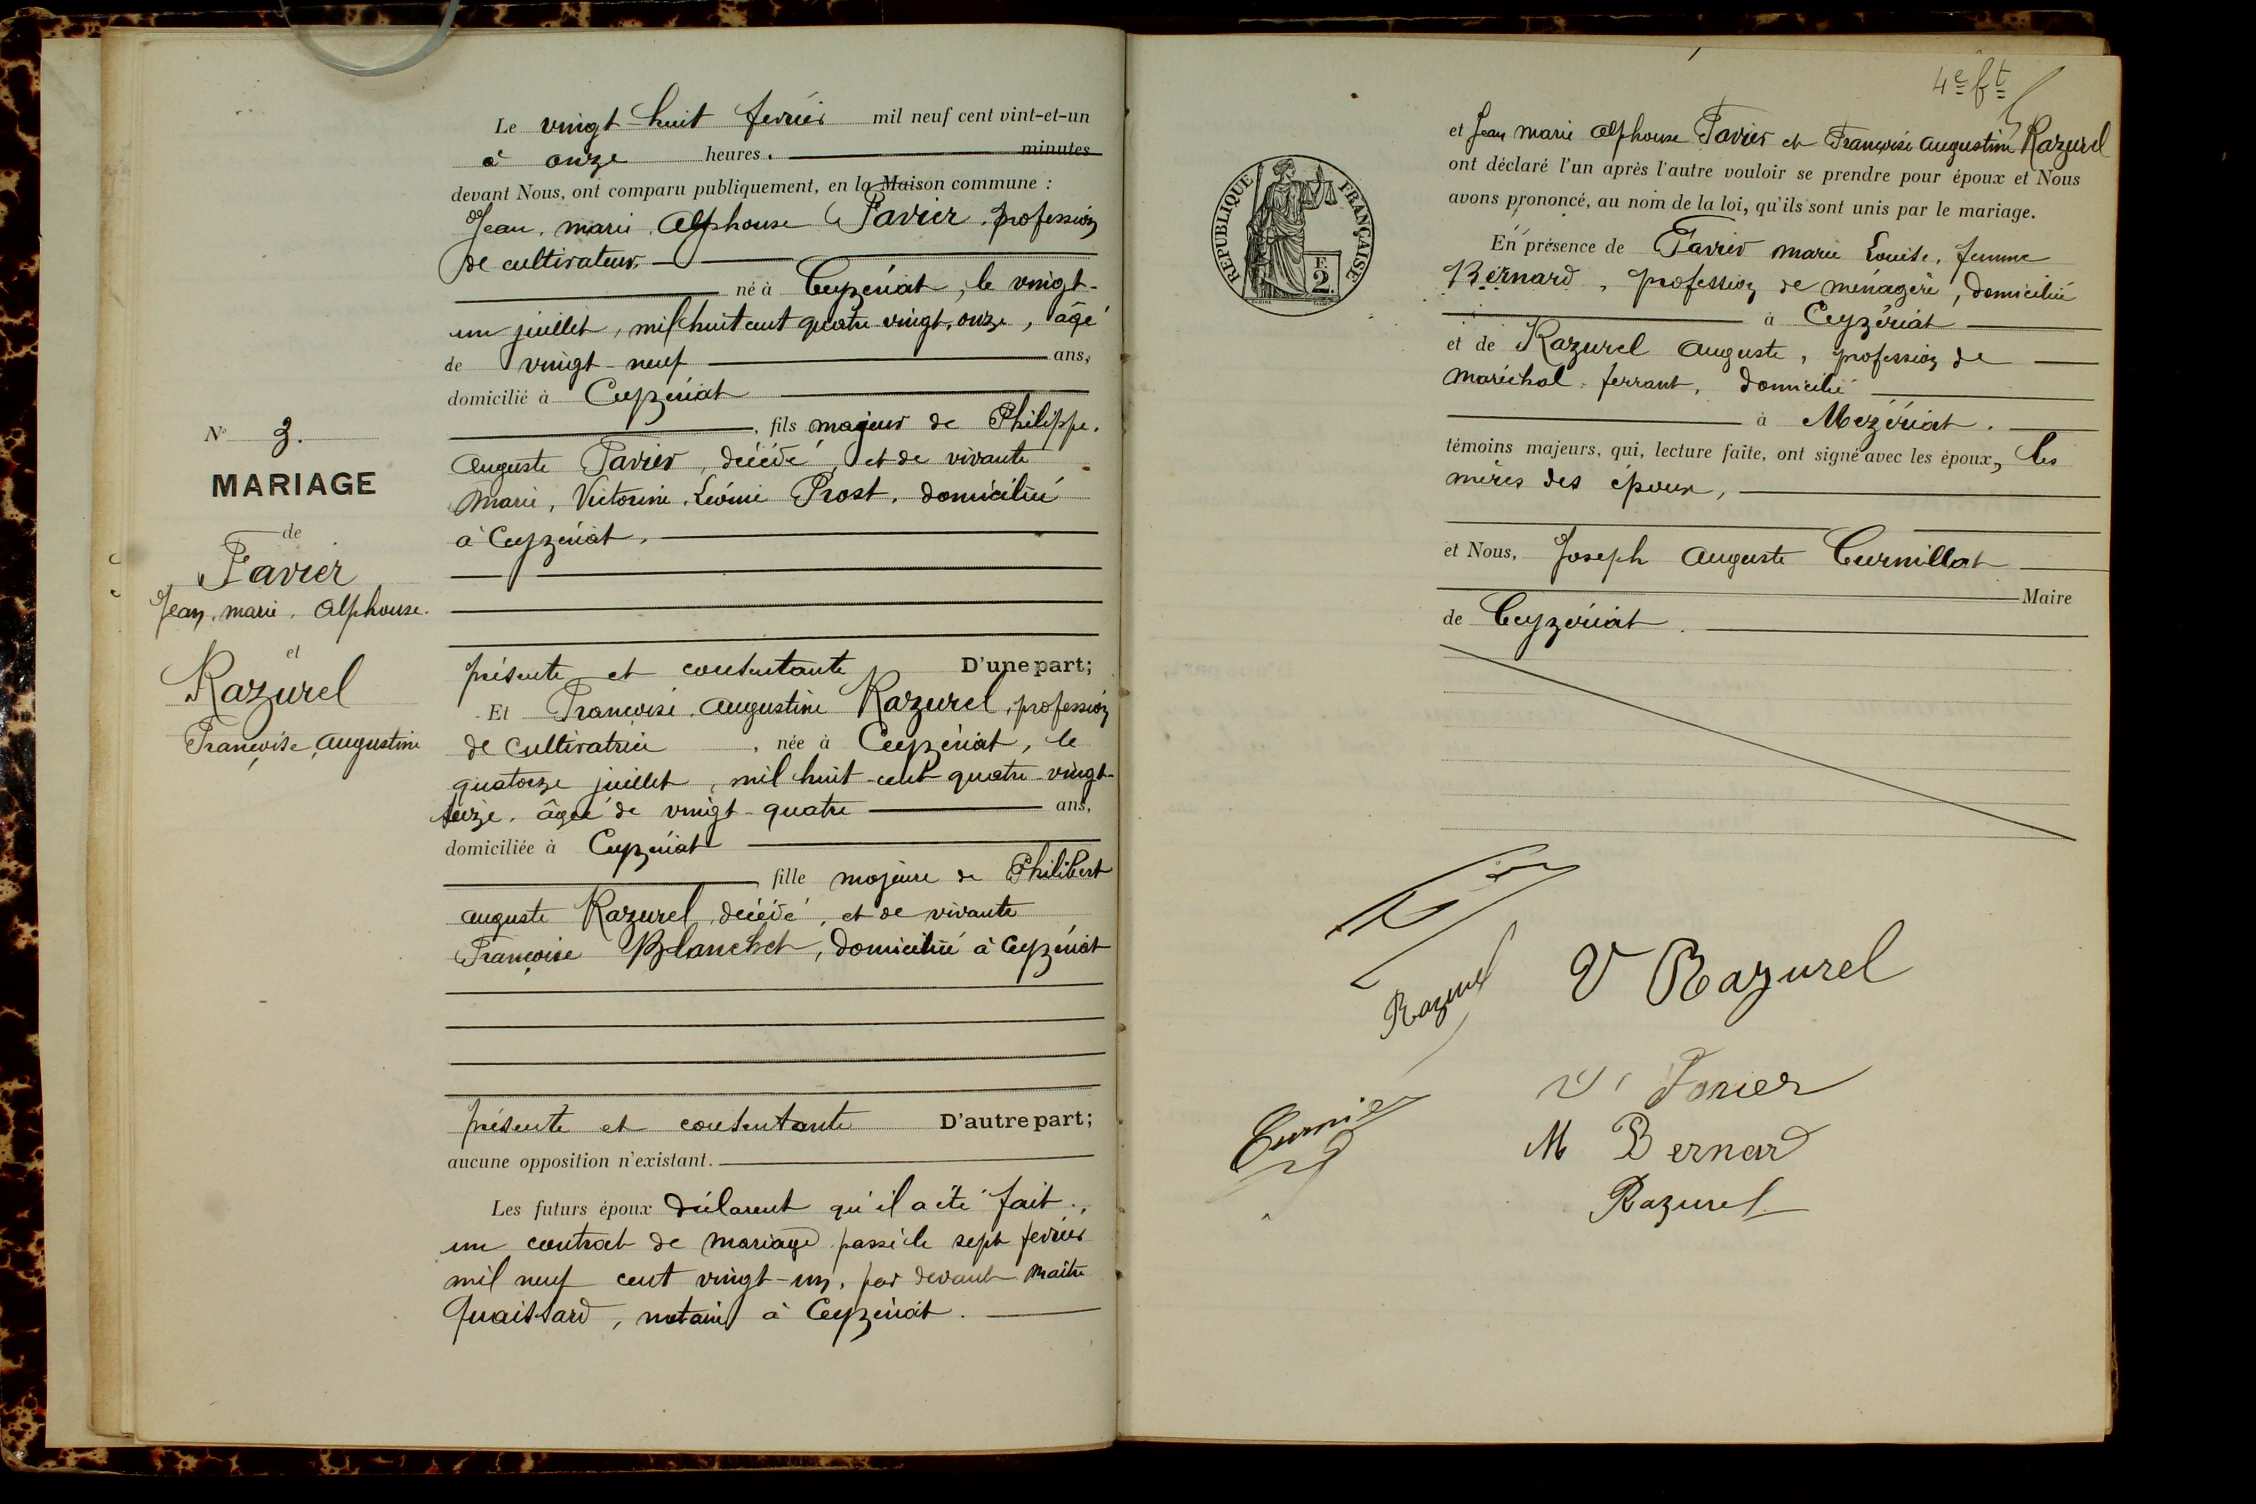 Le vingt-huit fevrier mil neuf cent vint-et-un
à onze heures. minutes
devant Nous, ont comparu publiquement, en la Maison commune :
Jean, marie, Alphonse Favier, profession
de cultivateur,
né à Ceyzériat, le vingt-
un juillet, mil huit cent quatre vingt, onze, âgé
de vingt-neuf ans,
domicilié à Ceyzériat
, fils majeur de Philippe,
Auguste Favier, décédé, et de vivante
Marie, Victorine, Léonie Prost, domiciliée
à Ceyzériat,
présente et consentante D'une part;
Et Françoise, Augustine Razurel, profession
de cultivatrice, née à Ceyzériat, le
quatorze juillet, mil huit-cent quatre-vingt-
seize, âgée de vingt-quatre ans,
domiciliée à Ceyzériat
fille majeure de Philibert
Auguste Razurel, décédé, et de vivante
Françoise Blanchet, domiciliée à Ceyzériat
présente et consentante D'autre part;
aucune opposition n'existant.
Les futurs époux déclarent qu'il a été fait
un contrat de mariage passé le sept fevrier
mil neuf cent vingt-un, par devant maître
Quaissard, notaire à Ceyzériat.
N° 3.
MARIAGE
de
Favier
Jean, marie, Alphonse.
et
Razurel
Françoise, Augustine
4e ft
et Jean marie Alphonse Favier et Françoise Augustine Razurel
ont déclaré l'un après l'autre vouloir se prendre pour époux et Nous
avons prononcé, au nom de la loi, qu'ils sont unis par le mariage.
RÉPUBLIQUE FRANÇAISE
F.
2.
En présence de Favier marie Louise, femme
Bernard, profession de ménagère, domiciliée
à Ceyzériat
et de Razurel Auguste, profession de
maréchal-ferrant, domicilié
à Mézériat.
témoins majeurs, qui, lecture faite, ont signé avec les époux, les
mères des époux,
et Nous, Joseph Auguste Curnillat
Maire
de Ceyzériat.
Razurel
V Razurel
V Favier
M Bernard
Razurel